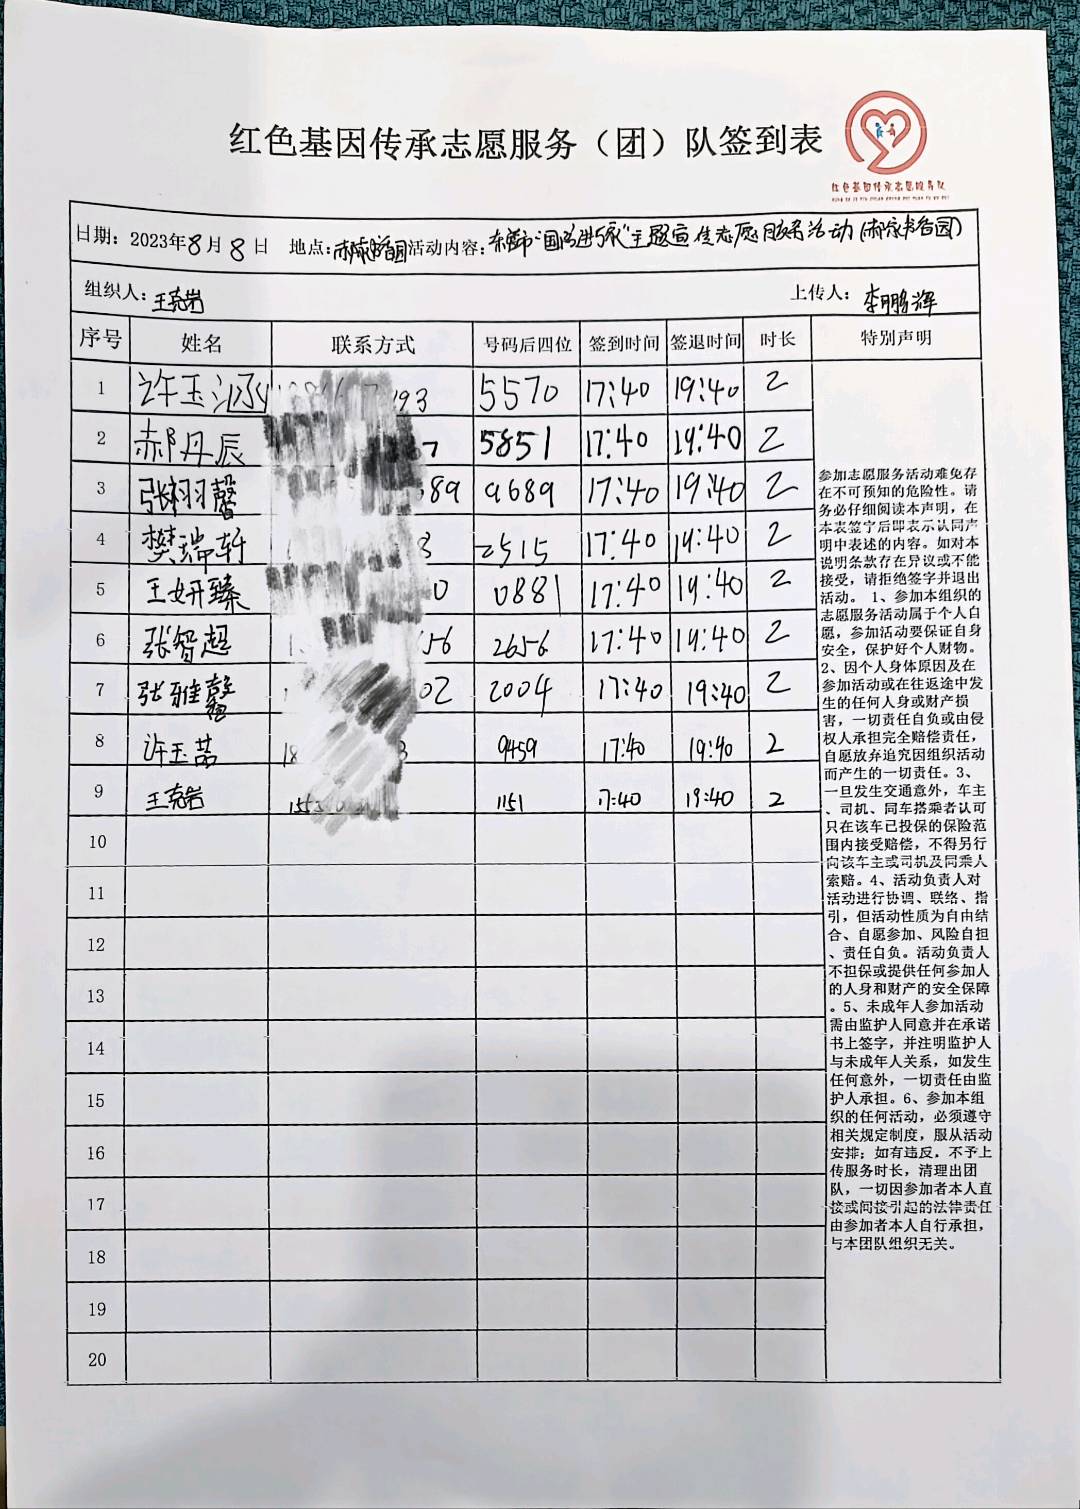 红色基因传承志愿服务（团）队签到表
红色基因传承志愿服务队
日期：2023年8月8日 地点： 活动内容： 主题宣传志愿服务活动
组织人：王克岩 上传人：李鹏辉
序号 姓名 联系方式 号码后四位 签到时间 签退时间 时长 特别声明
1 许玉涵 93 5570 17:40 19:40 2
2 郝丹辰 5851 17:40 19:40 2
3 张栩馨 689 9689 17:40 19:40 2
4 樊瑞轩 2515 17:40 19:40 2
5 王妍臻 0 0881 17:40 19:40 2
6 张智超 656 2656 17:40 19:40 2
7 张雅馨 02 2004 17:40 19:40 2
8 许玉茁 18 9459 17:40 19:40 2
9 王克岩 155 1151 17:40 19:40 2
10
11
12
13
14
15
16
17
18
19
20
参加志愿服务活动难免存
在不可预知的危险性。请
务必仔细阅读本声明，在
本表签字后即表示认同声
明中表述的内容。如对本
说明条款存在异议或不能
接受，请拒绝签字并退出
活动。 1、参加本组织的
志愿服务活动属于个人自
愿，参加活动要保证自身
安全，保护好个人财物。
2、因个人身体原因及在
参加活动或在往返途中发
生的任何人身或财产损
害，一切责任自负或由侵
权人承担完全赔偿责任，
自愿放弃追究因组织活动
而产生的一切责任。3、
一旦发生交通意外，车主
、司机、同车搭乘者认可
只在该车已投保的保险范
围内接受赔偿，不得另行
向该车主或司机及同乘人
索赔。4、活动负责人对
活动进行协调、联络、指
引，但活动性质为自由结
合、自愿参加、风险自担
、责任自负。活动负责人
不担保或提供任何参加人
的人身和财产的安全保障
。5、未成年人参加活动
需由监护人同意并在承诺
书上签字，并注明监护人
与未成年人关系，如发生
任何意外，一切责任由监
护人承担。6、参加本组
织的任何活动，必须遵守
相关规定制度，服从活动
安排；如有违反，不予上
传服务时长，清理出团
队，一切因参加者本人直
接或间接引起的法律责任
由参加者本人自行承担，
与本团队组织无关。